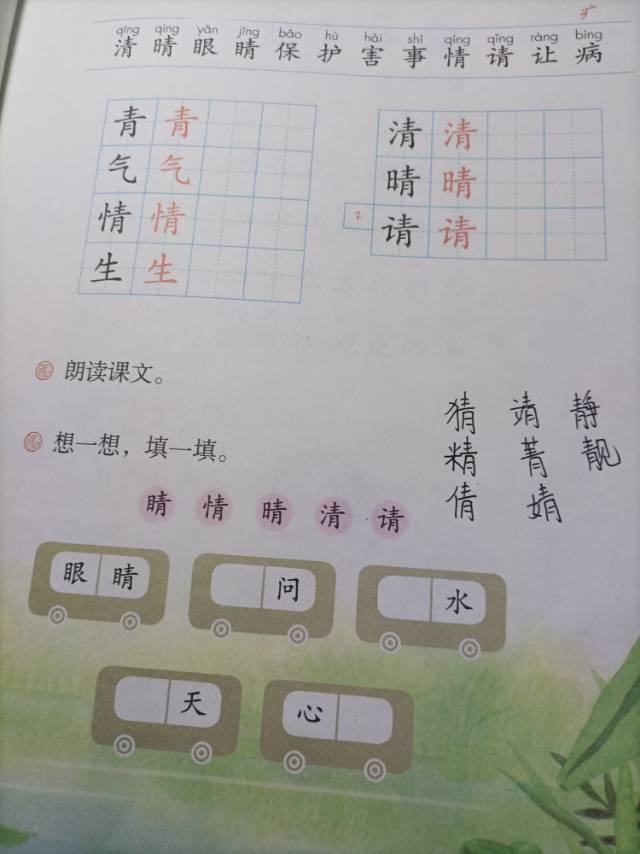 疒
qīng qíng yǎn jīng bǎo hù hài shì qíng qǐng ràng bìng
清 晴 眼 睛 保 护 害 事 情 请 让 病
青 青
气 气
情 情
生 生
清 清
晴 晴
请 请
朗读课文。
想一想，填一填。
睛 情 晴 清 请
猜 靖 静
精 菁 靓
倩 婧
眼 睛
问
水
天
心